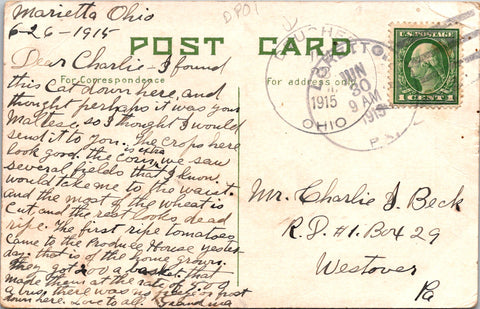 Marietta Ohio
6-26-1915
DPO1
POST CARD
For Correspondence
For address only
Dear Charlie - I found
this cat down here, and
thought perhaps it was your
Maltese, so I thought I would
send it to you. The crops here
look good. the corn is extra we saw
several fields that I know
would take me to the waist.
and the most of the wheat is
cut, and the rest looks dead
ripe. The first ripe tomatoes
came to the Produce House yester
day. that is of the home grown.
They got 2.00 a basket. that
made them at the rate of
a bus. there was no frost
down here. Love to all.
JUN
30
9 AM
1915
1915
OHIO
PA.
U.S. POSTAGE
1 CENT 1
Mr. Charlie J. Beck
R.D. #1. Box 29
Westover
Pa